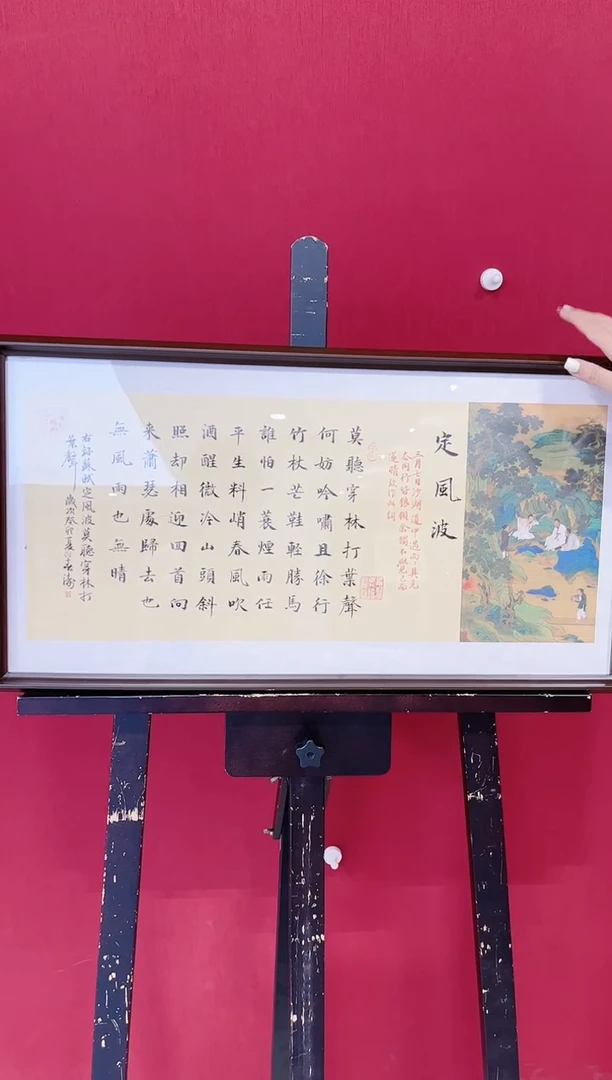 定風波
三月七日沙湖道中遇雨具先
去同行皆狼狽余獨不覺已而
遂晴故作此詞
莫聽穿林打葉聲
何妨吟嘯且徐行
竹杖芒鞋輕勝馬
誰怕一蓑煙雨任
平生料峭春風吹
酒醒微冷山頭斜
照却相迎回首向
来蕭瑟處歸去也
無風雨也無晴
右錄蘇軾定風波莫聽穿林打
葉聲 歲次癸卯夏